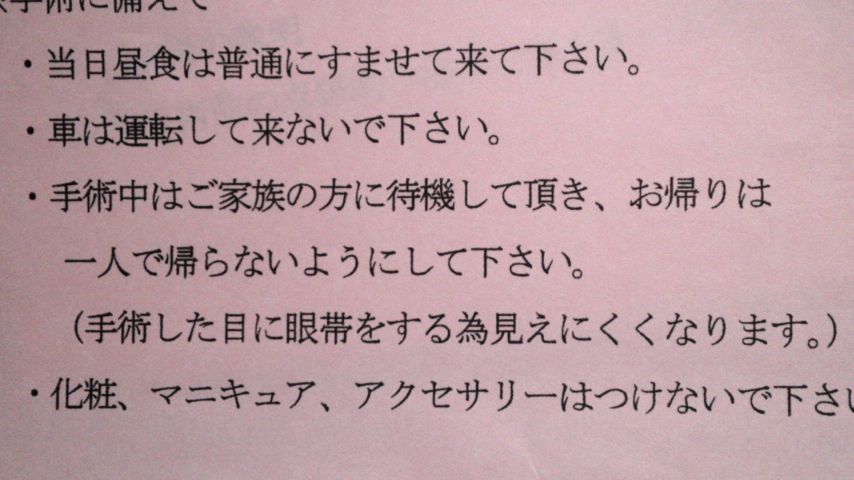 手術に備えて
・当日昼食は普通にすませて来て下さい。
・車は運転して来ないで下さい。
・手術中はご家族の方に待機して頂き、お帰りは
一人で帰らないようにして下さい。
（手術した目に眼帯をする為見えにくくなります。）
・化粧、マニキュア、アクセサリーはつけないで下さい